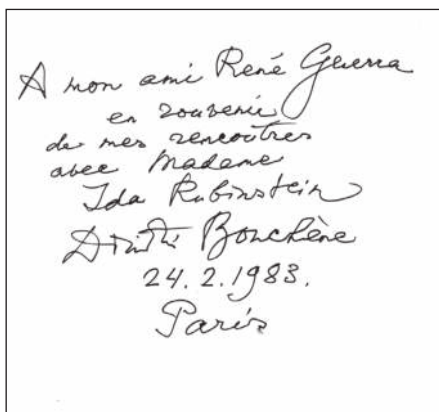 A mon ami René Guerra
en souvenir
de mes rencontres
avec Madame
Ida Rubinstein
Dimitri Bouchène
24.2.1983.
Paris